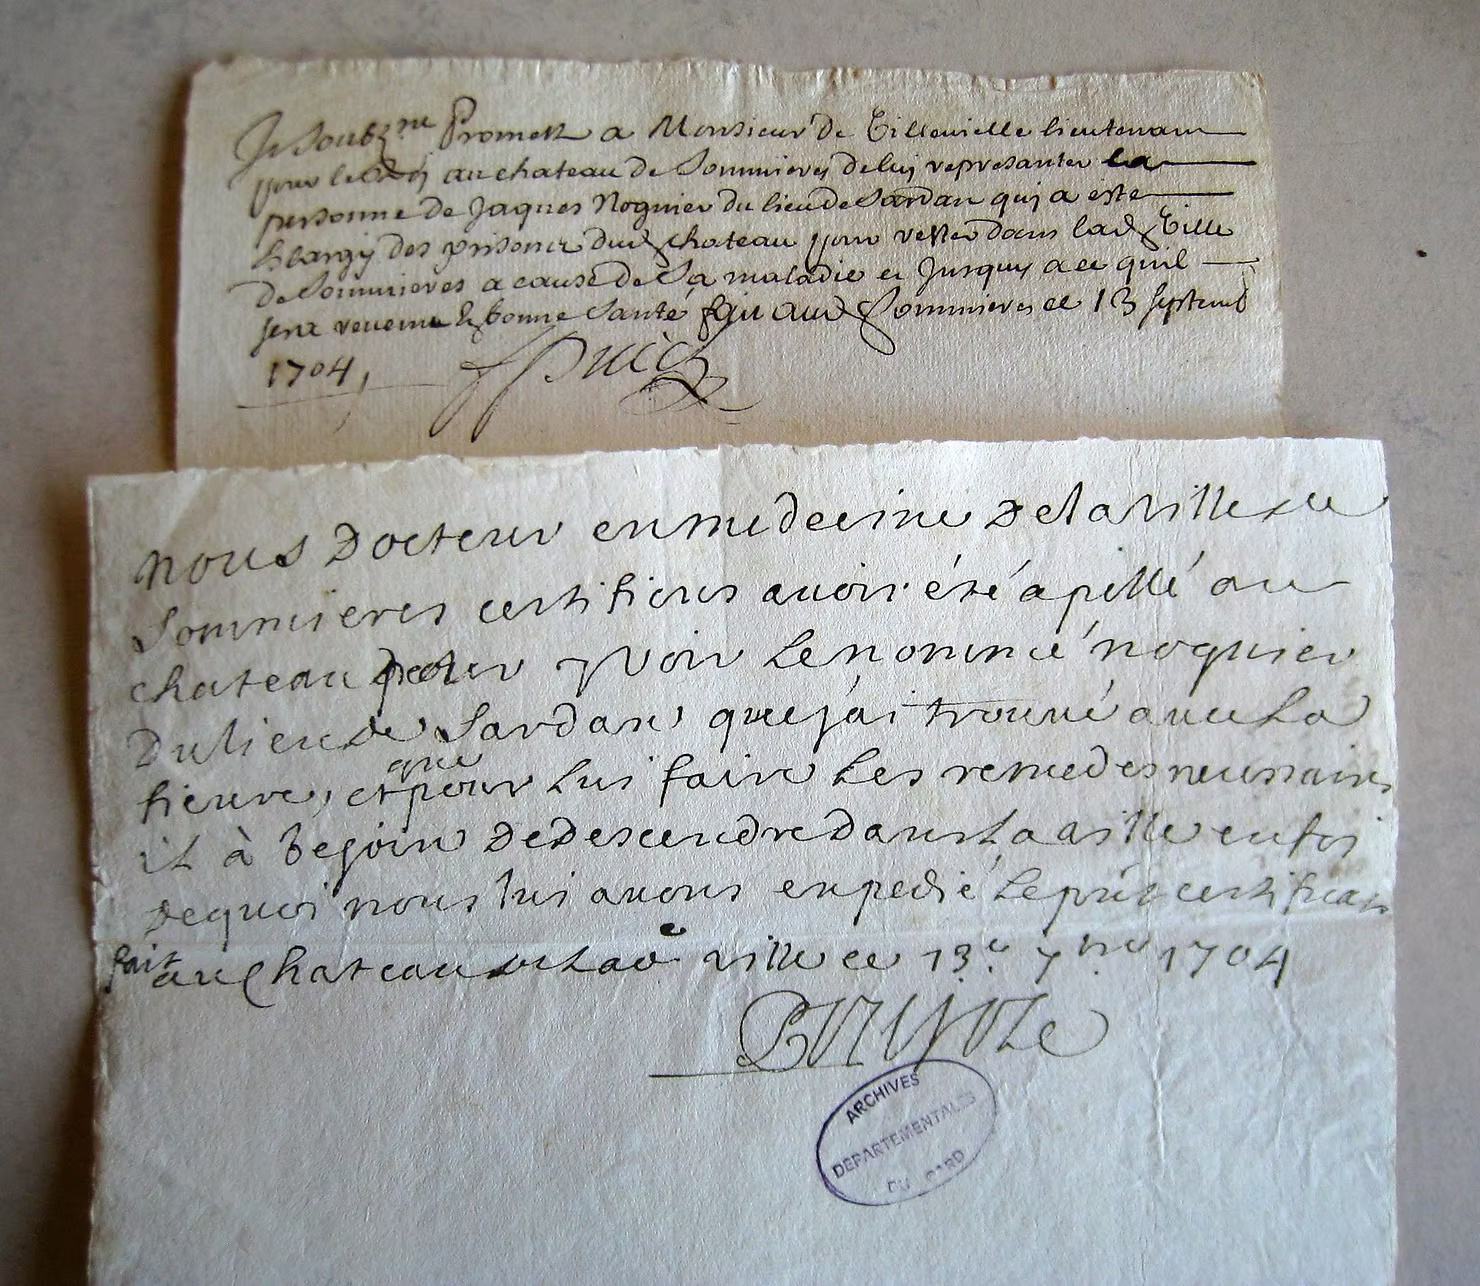 Je soubz.ne Prometz a Monsieur de Villevielle lieutenant
pour le Roy au chateau de Sommieres de luy represanter la
personne de Jaques Noguier du lieu de Sardan quj a este
Elargy des prisons dud chateau pour rester dans lad Ville
de Sommieres a cause de Sa maladie et Jusques a ce quil
sera revenu En bonne Santé fait aud Sommieres ce 13 septemb
1704,
nous Docteur en medecine De la Ville de
Sommieres certifions auoir été apellé au
chateau pour voir le nommé noguier
Du lieu de Sardan que jái trouué auec la
fieure, et que pour lui faire les remedes necessaires
il à besoin De Descendre Dans la ville en foi
Dequoi nous lui auons expedié le pnt certificat
fait au Chateau de lad ville ce 13.e 7bre 1704
ARCHIVES
DÉPARTEMENTALES
DU GARD